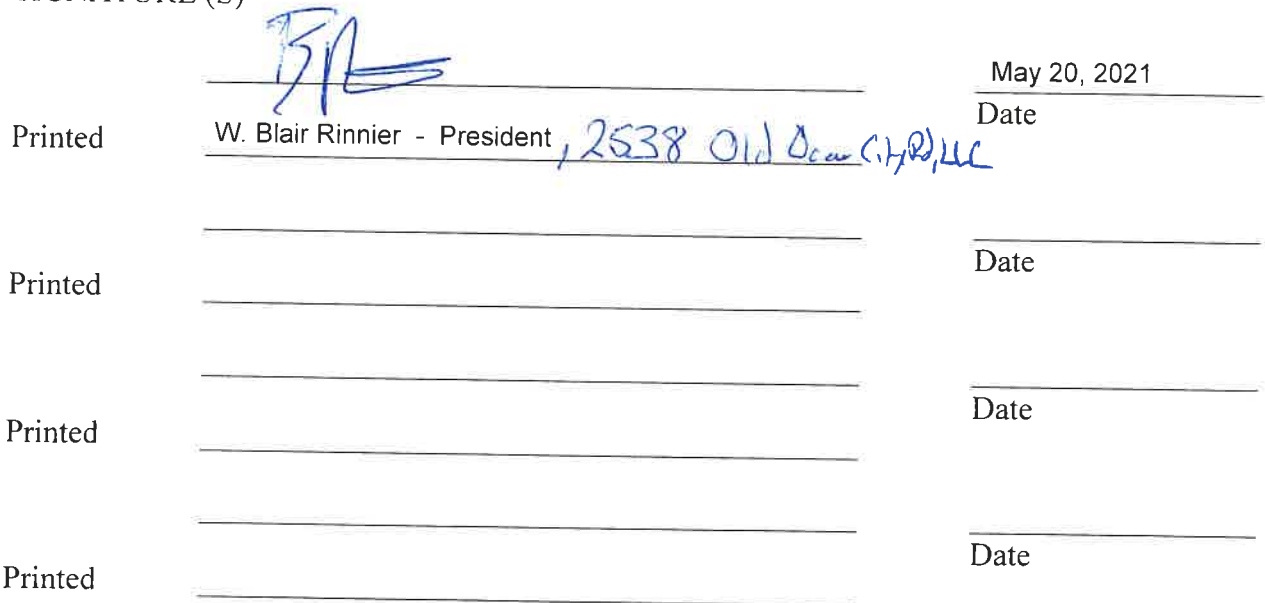 May 20, 2021
Date
Printed W. Blair Rinnier - President , 2538 Old Ocean City Rd, LLC
Date
Printed
Date
Printed
Date
Printed